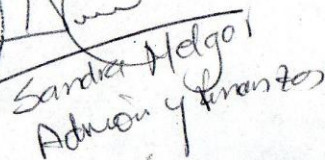 Sandra Melgar
Admión y finanzas